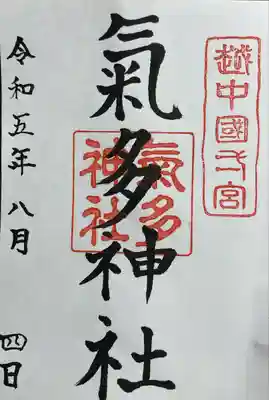 越中國一宮
氣多神社
氣多
神社
令和五年 八月 四日